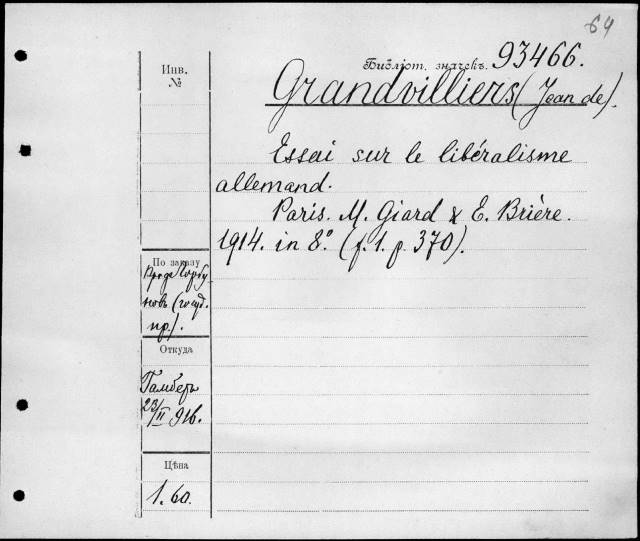 64
Библіот. значекъ. 93466.
Инв.
№
Grandvilliers (Jean de).
Essai sur le libéralisme
allemand.
Paris. M. Giard & E. Brière.
1914. in 8.° (f. 1. p. 370).
По заказу
новъ (госуд.
пр.).
Откуда
Гамберъ
23/II 916.
Цѣна
1.60.